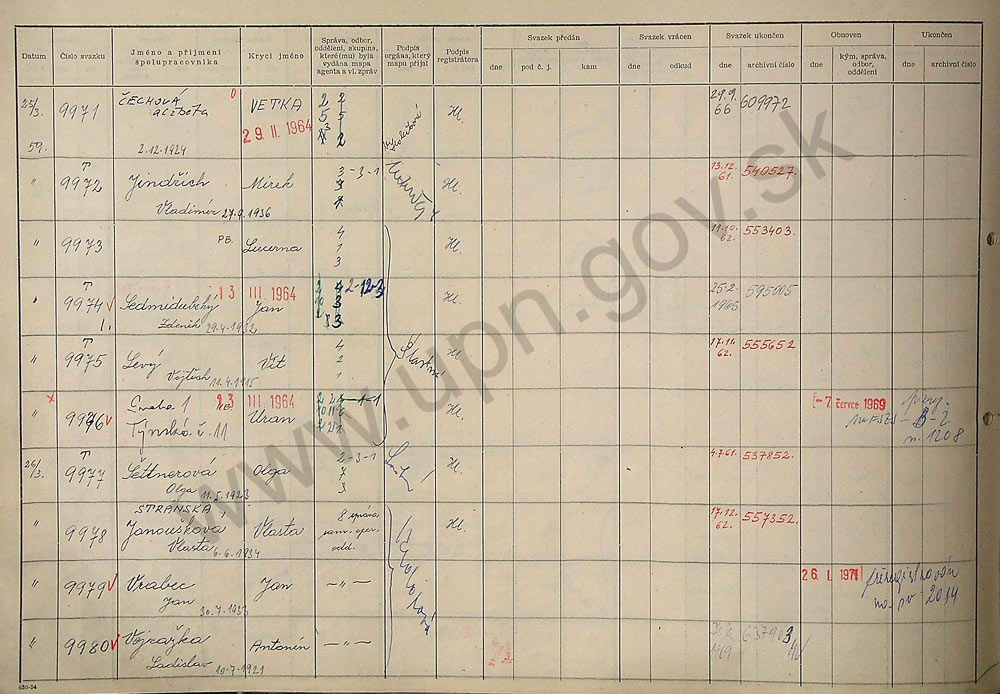 Datum
Číslo svazku
Jméno a příjmení
spolupracovníka
Krycí jméno
Správa, odbor,
oddělení, skupina,
které(mu) byla
vydána mapa
agenta a vl. zpráv
Podpis
orgána, který
mapu přijal
Podpis
registrátora
Svazek předán
dne
pod č. j.
kam
Svazek vrácen
dne
odkud
Svazek ukončen
dne
archivní číslo
Obnoven
dne
kým, správa,
odbor,
oddělení
Ukončen
dne
archivní číslo
25/3.
59.
9971
ČECHOVÁ
2.12.1924
VĚTKA
29. II. 1964
Hl.
29.9.
66
609972
" T
9972
Jindřich
Vladimír 27.9.1936
Mirek
3-3-1
Hl.
13.12.
61.
540527.
"
9973
PB.
Lucerna
4
1
3
Hl.
19.10.
62.
553403.
" T
9974 v
1.
Sedmidubský
Zdeněk 29.4.1932
13 III. 1964
Jan
2-12-3
Hl.
25.2.
1965
595005
" T
9975
Levý
Vojtěch 11.4.1915
Vít
4
2
1
Šťastný
Hl.
17.11.
62.
555652
" x
9976 v
Praha 1
Týnská č. 11
23 III. 1964
Uran
Hl.
-7. července 1969
B-2
n. 1208
26/3.
T
9977
Šettnerová
Olga 11.5.1923
Olga
2-3-1
7
3
Hl.
4.7.61.
537852.
" T
9978
STRÁNSKÁ
Janoušková
Vlasta 6.6.1934
Vlasta
8 správa
sam. oper.
odd.
Hl.
17.12.
62.
557352.
"
9979 v
Vrabec
Jan 30.7.1933
Jan
-"-
26. I. 1971
přeregistrován
na pv 2014
"
9980 v
Vojražka
Ladislav 10.7.1921
Antonín
-"-
1969
637903
630-54
www.upn.gov.sk